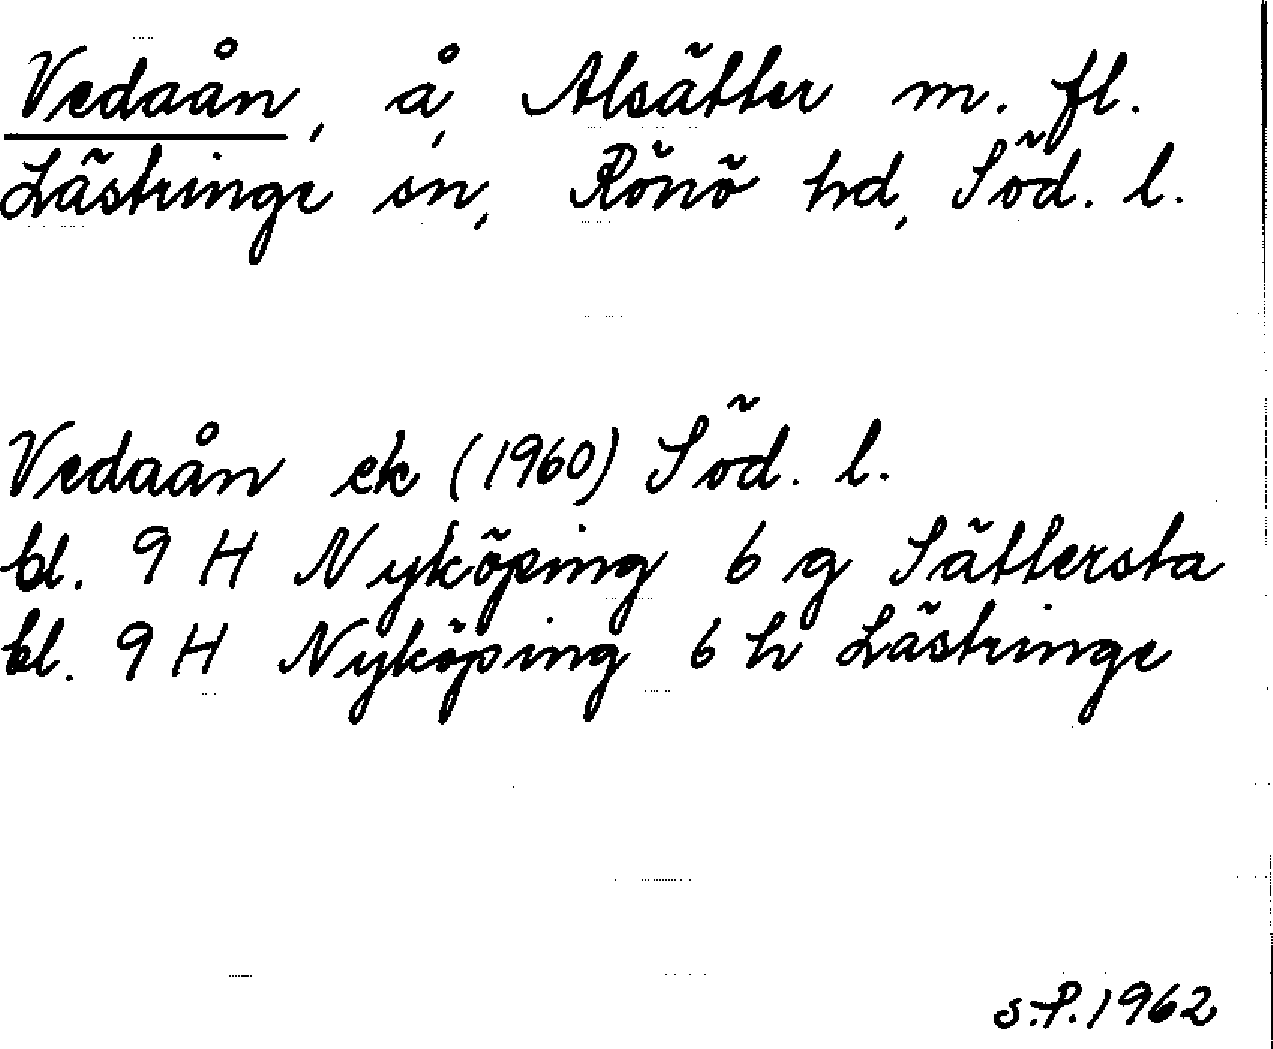 Vedaån, å, Alsätter m. fl.
Lästringe sn, Rönö hd, Söd. l.
Vedaån ek (1960) Söd. l.
bl. 9 H Nyköping 6 g Sättersta
bl. 9 H Nyköping 6 h Lästringe
S.P. 1962